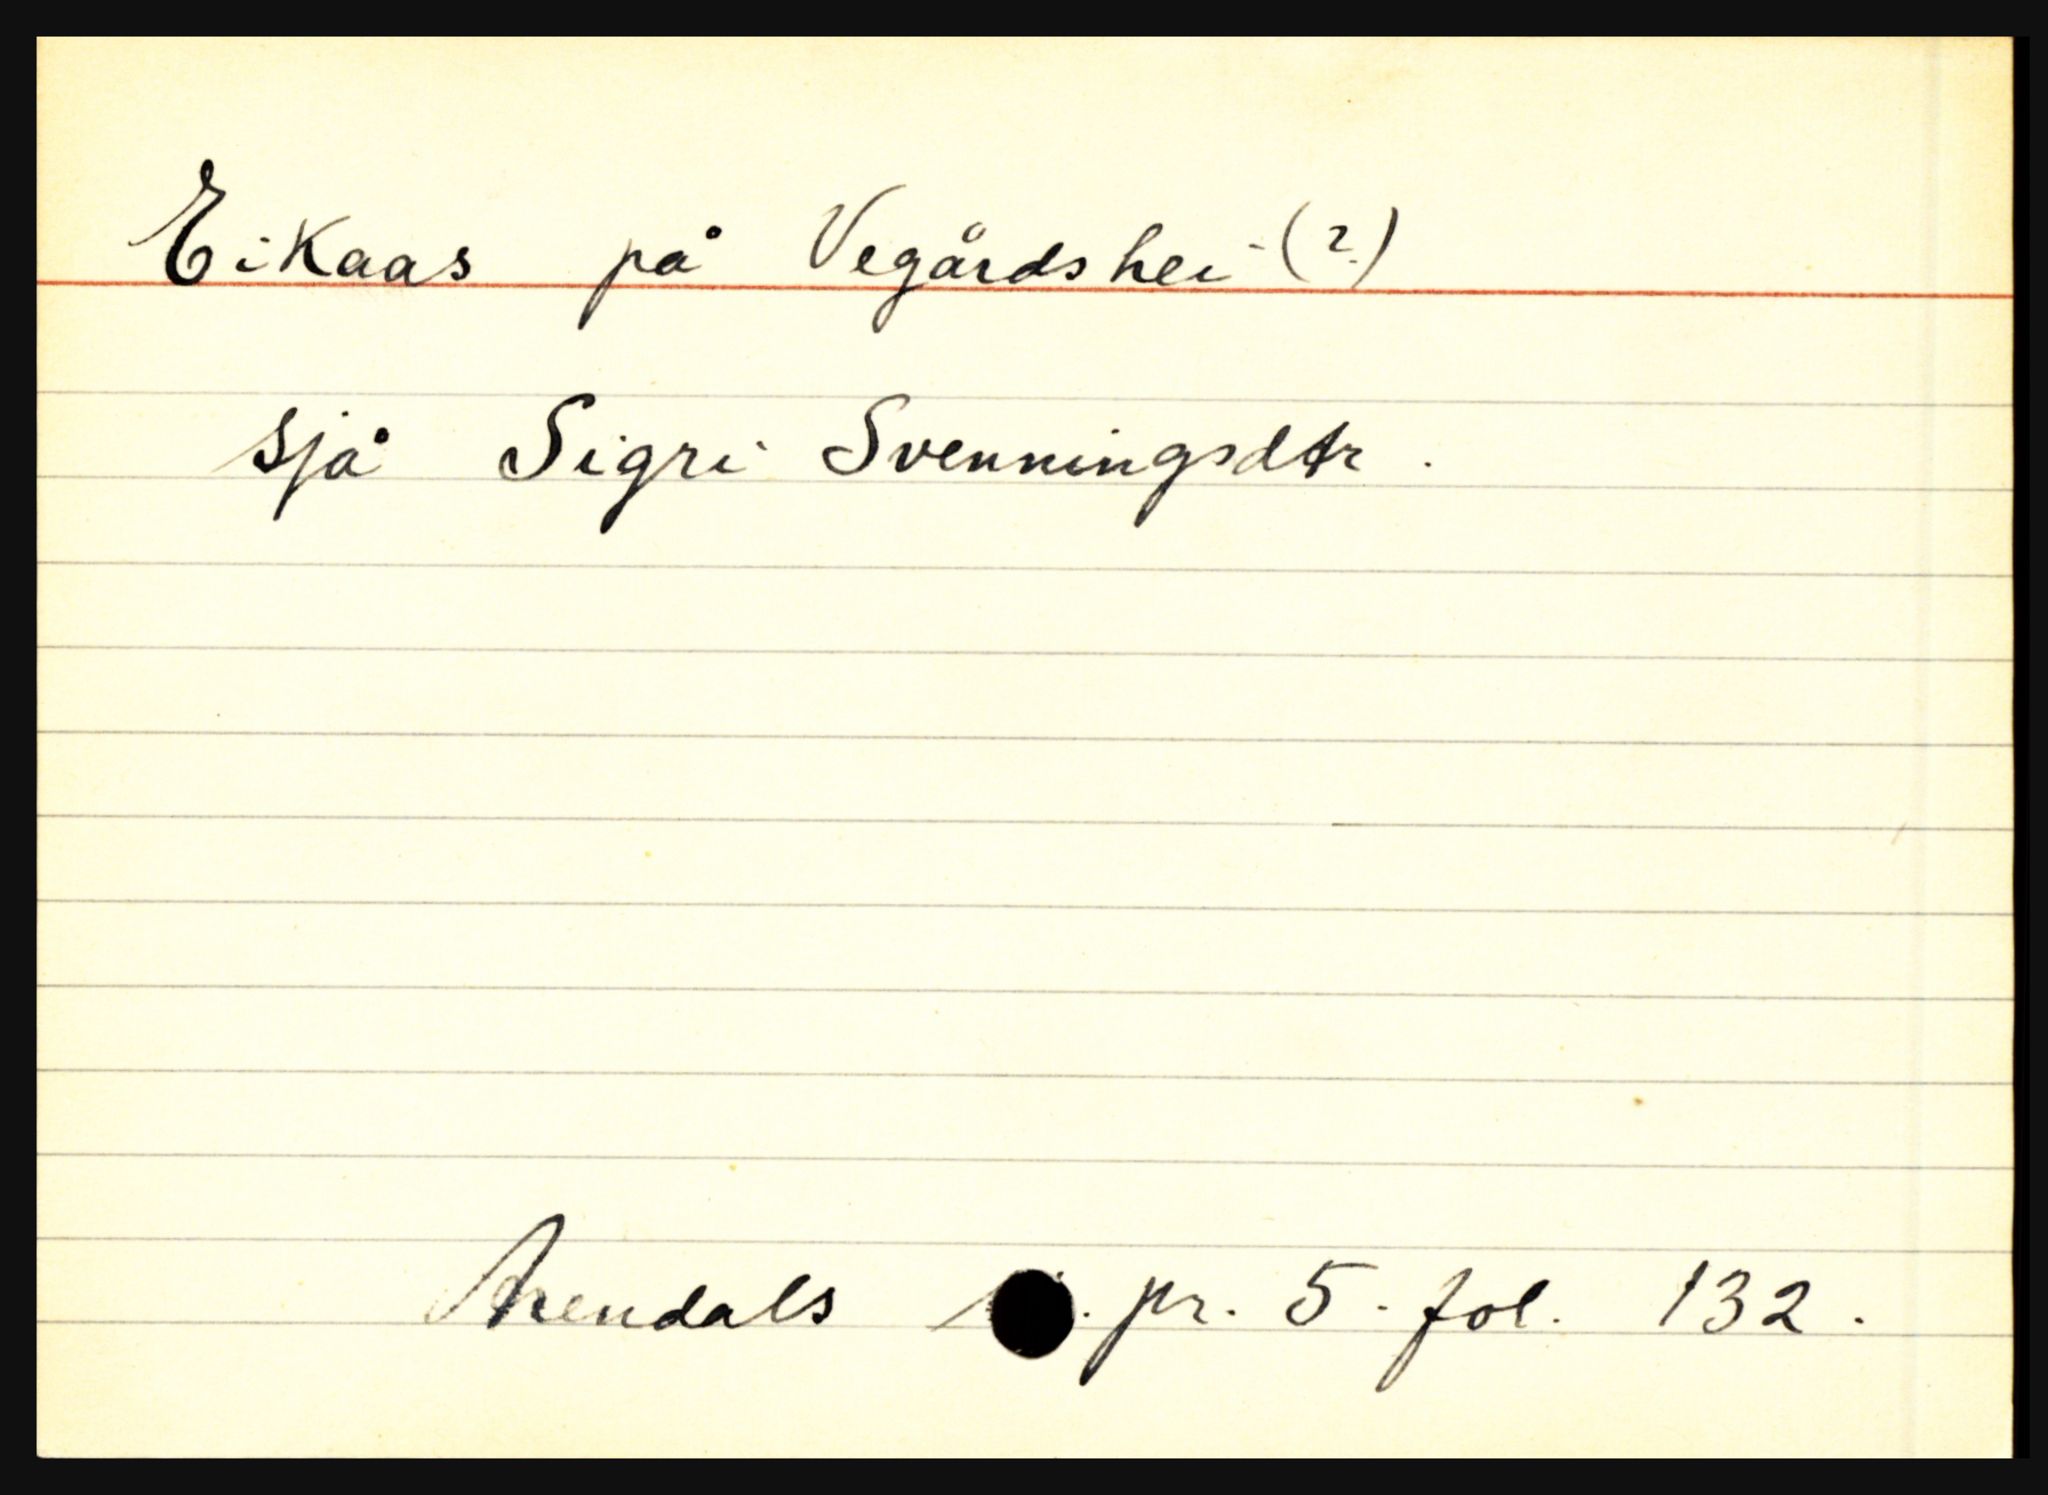 Eikaas på Vegårdshei (?)
sjå Sigri Svenningsdtr.
Arendals pr. 5. fol. 132.